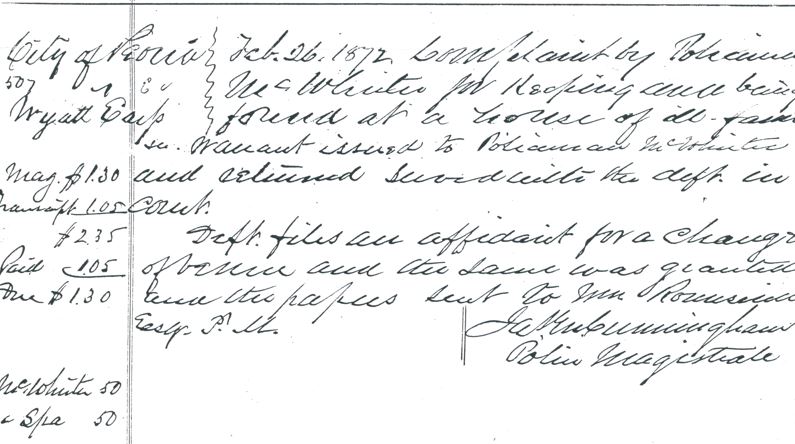 City of Peoria
507 vs
Wyatt Earp
Feb. 26. 1872 Complaint by Policeman
McWhirter for keeping and being
found at a house of ill-fame
Warrant issued to Policeman McWhirter
Mag. $1.30 and returned served with the deft. in
Transcript 1.05 Court.
$2.35 Deft. files an affidavit for a change
Paid 1.05 of venue and the same was granted
Due $1.30 and the papers sent to
Esq. P. M.
Cunningham
Police Magistrate
McWhirter 50
Spa 50